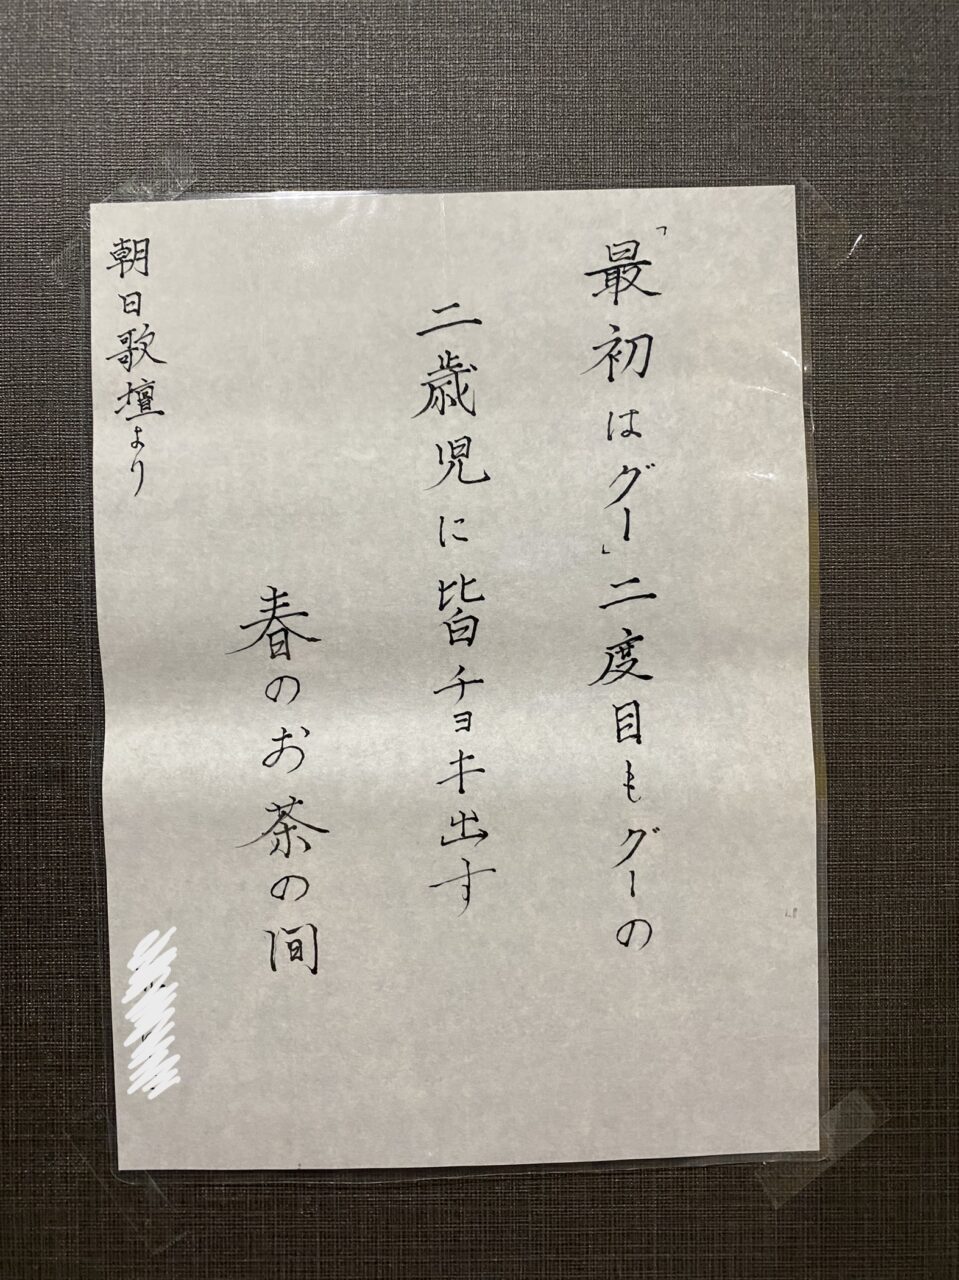 「最初はグー」二度目もグーの
二歳児に皆チョキ出す
春のお茶の間
朝日歌壇より